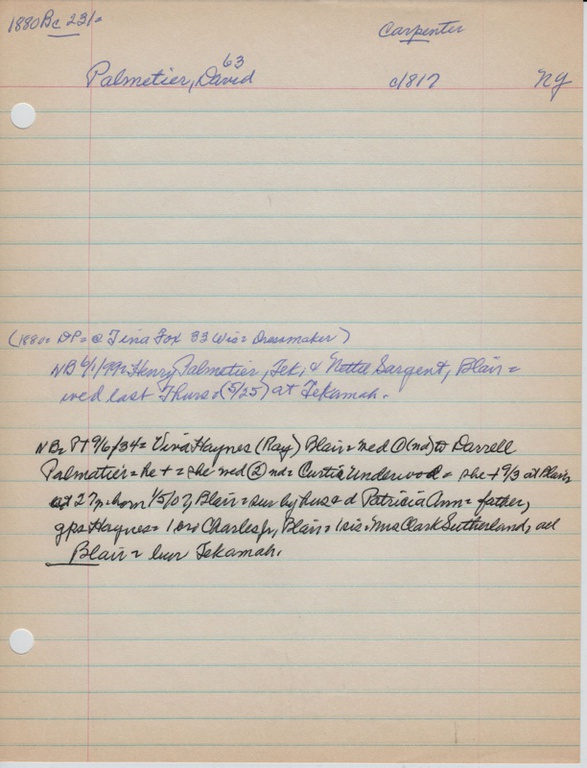 1880 Bc 231=
Carpenter
63
Palmetier, David c/817 NY
(1880= DP= @ Tina Fox 33 Wis= Dressmaker)
NB 6/1/99= Henry Palmetier, Tek, & Nettie Sargent, Blair=
wed last Thurs= (5/25) at Tekamah.
NB= PT 9/6/34= Viva Haynes (Ray) Blair= wed ① (nd) to Darrell
Palmatier= he + = she wed ② nd= Curtis Underwood= she + 9/3 at Blair
at 27y. born 1/5/07, Blair= sur by hus= d Patricia Ann= father,
gps Haynes= 1 bro Charles Jr, Blair= 1 sis= Mrs Clark Sutherland, all
Blair= bur Tekamah.